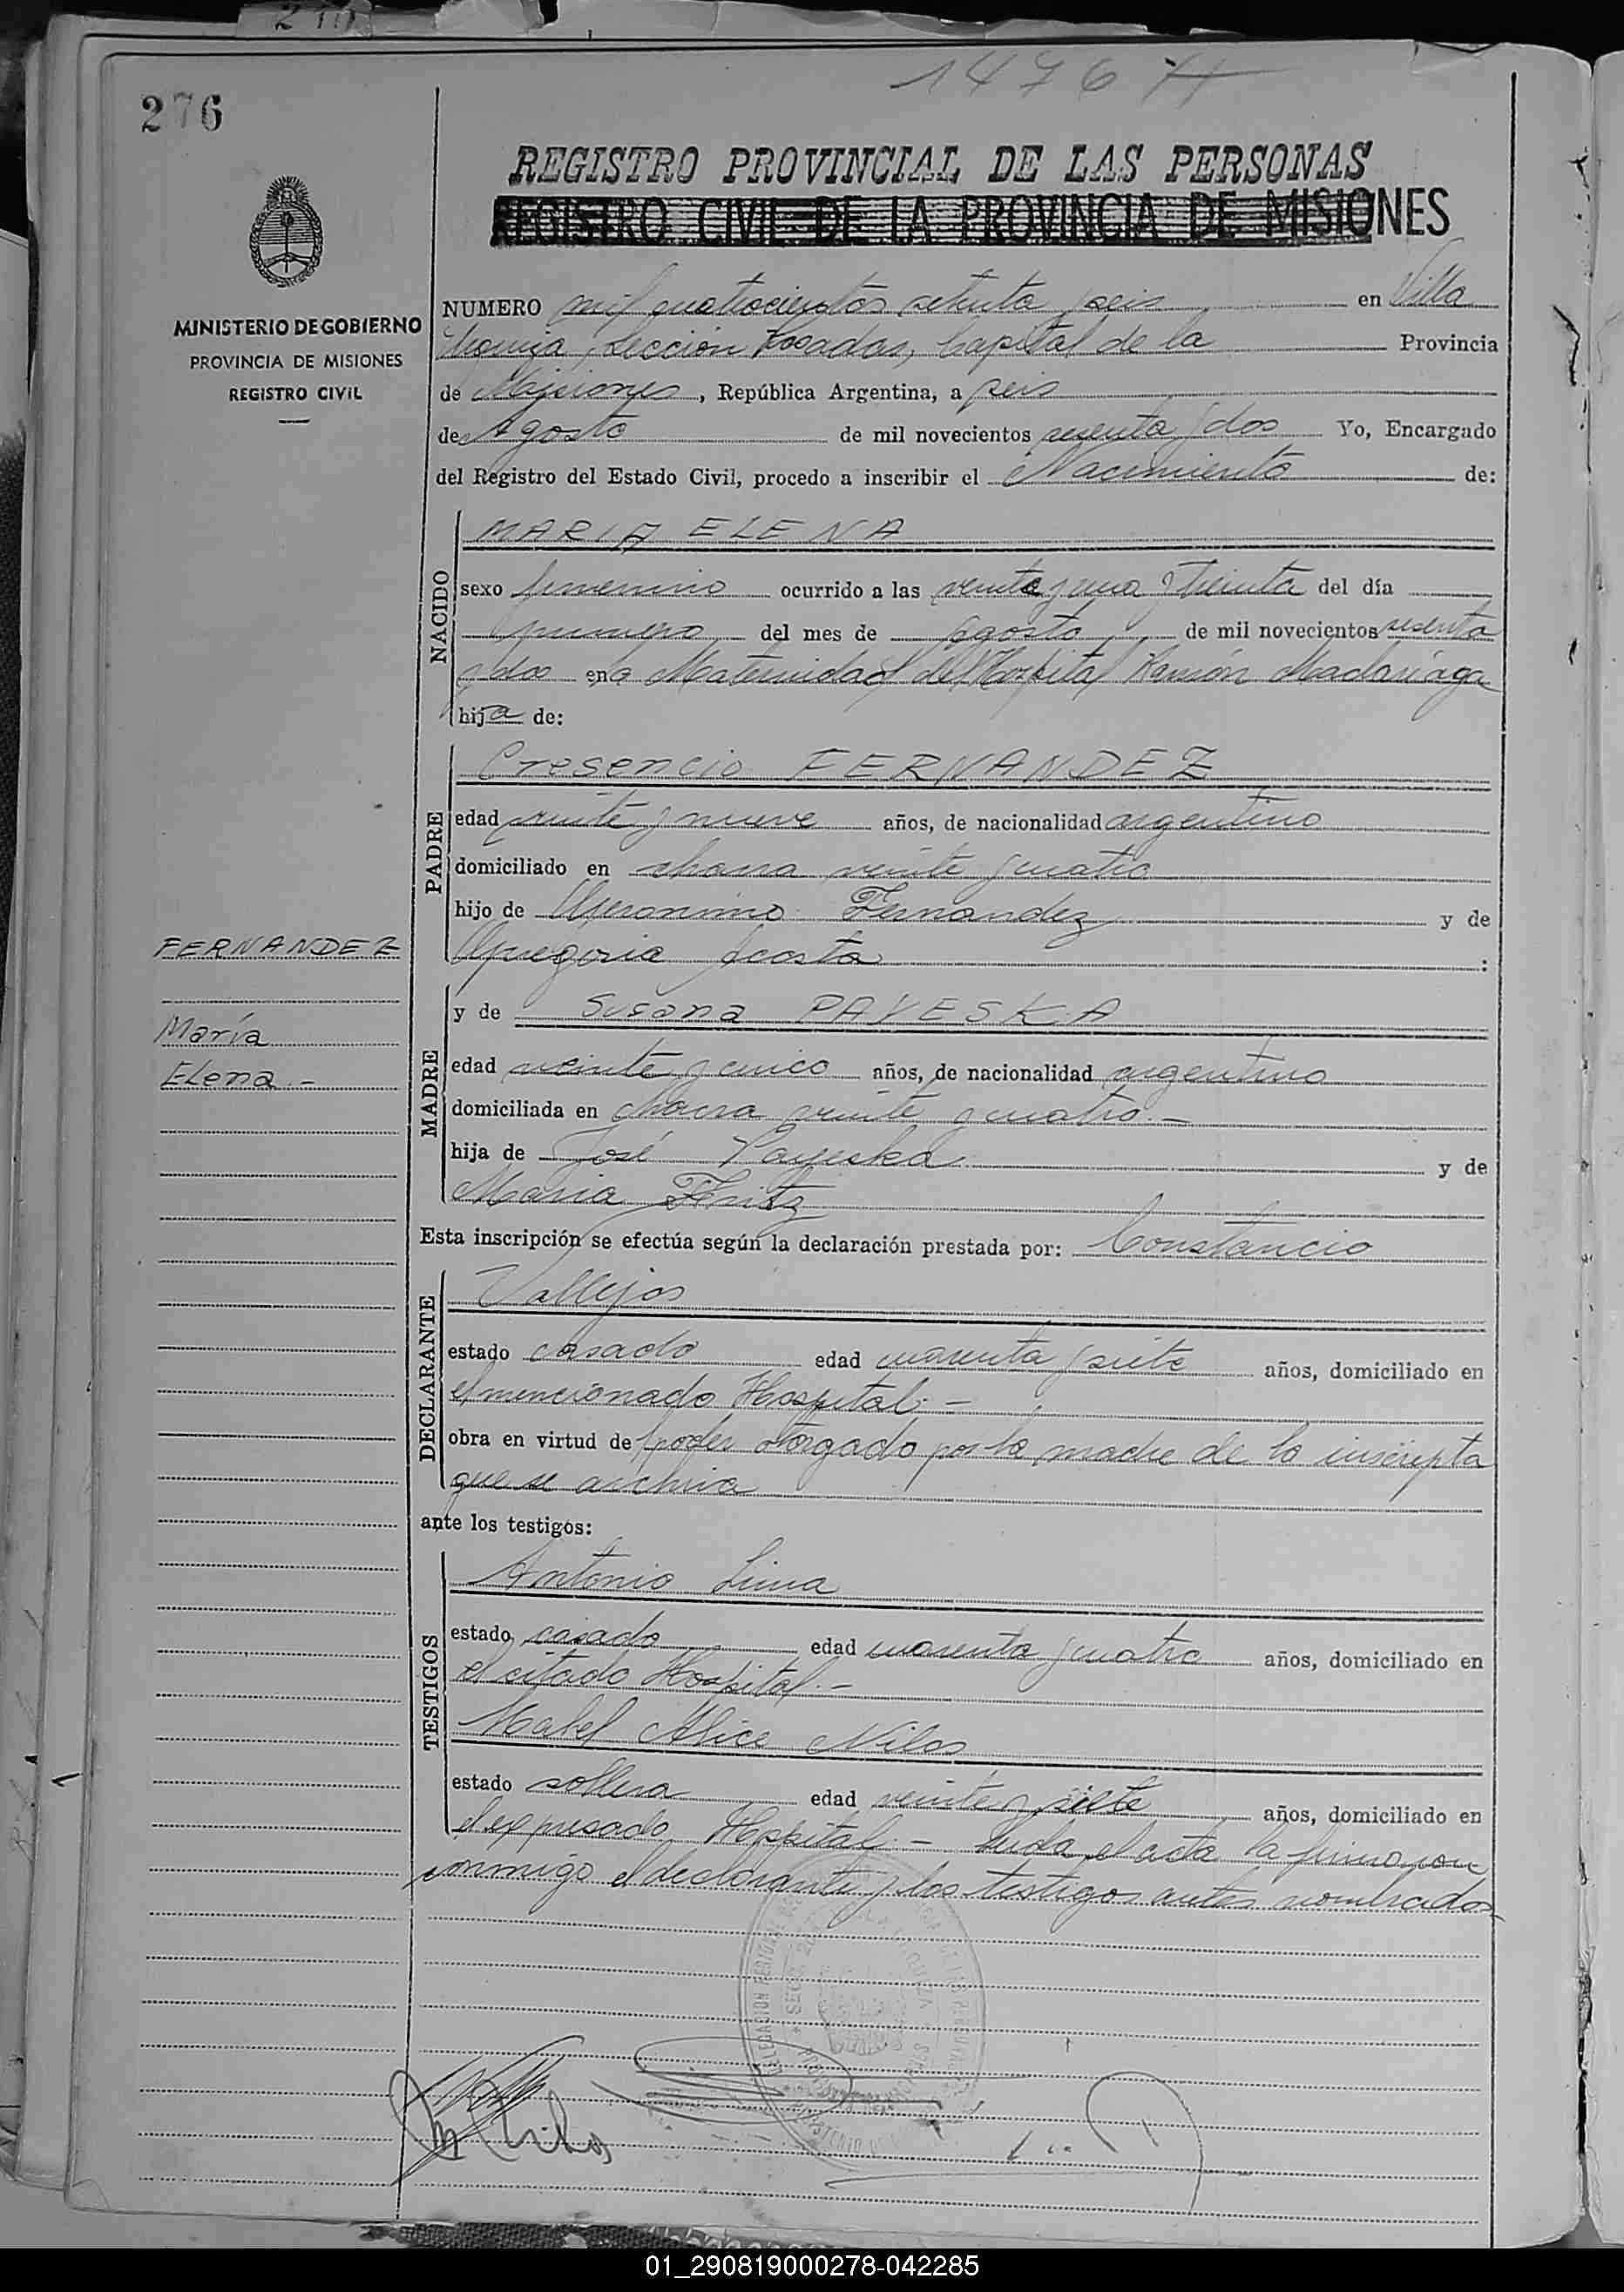 1476
276
REGISTRO PROVINCIAL DE LAS PERSONAS
REGISTRO CIVIL DE LA PROVINCIA DE MISIONES
MINISTERIO DE GOBIERNO
PROVINCIA DE MISIONES
REGISTRO CIVIL
NUMERO mil cuatrocientos setenta y seis en Villa
Urquiza, Sección Posadas, Capital de la Provincia
de Misiones, República Argentina, a seis
de Agosto de mil novecientos sesenta y dos Yo, Encargado
del Registro del Estado Civil, procedo a inscribir el Nacimiento de:
NACIDO
MARIA ELENA
sexo femenino ocurrido a las veinte y una y treinta del día
primero del mes de agosto de mil novecientos sesenta
y dos en la Maternidad del Hospital Ramón Madariaga
hija de:
PADRE
Cresencio FERNANDEZ
edad veinte y nueve años, de nacionalidad argentino
domiciliado en chacra veinte y cuatro
hijo de Gerónimo Fernandez y de
Gregoria Acosta :
FERNANDEZ
María
Elena.-
MADRE
y de Susana PAYESKA
edad veinte y cinco años, de nacionalidad argentina
domiciliada en chacra veinte y cuatro.-
hija de José Payeska y de
Maria Fritz
Esta inscripción se efectúa según la declaración prestada por: Constancio
DECLARANTE
Vallejos
estado casado edad cuarenta y siete años, domiciliado en
el mencionado Hospital.-
obra en virtud de poder otorgado por la madre de la inscripta
que se archiva
ante los testigos:
TESTIGOS
Antonio Lima
estado casado edad cuarenta y cuatro años, domiciliado en
el citado Hospital.-
Mabel Alice Nilos
estado soltera edad veinte y siete años, domiciliado en
el expresado Hospital.- Leida el acta la firman con
conmigo el declarante y los testigos antes nombrados
01_290819000278-042285